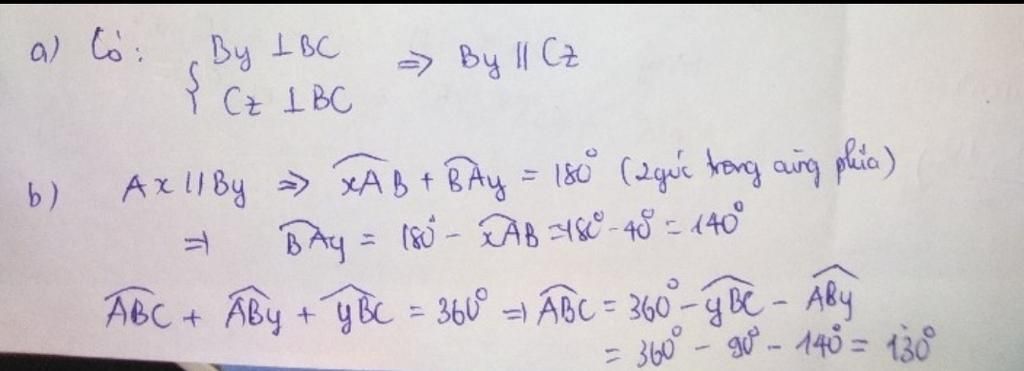 a) Có: { By ⊥ BC ⇒ By // Cz
Cz ⊥ BC
b) Ax // By ⇒ \widehat{xAB} + \widehat{BAy} = 180° (2 góc trong cùng phía)
⇒ \widehat{BAy} = 180° - \widehat{xAB} = 180° - 40° = 140°
\widehat{ABC} + \widehat{ABy} + \widehat{yBC} = 360° ⇒ \widehat{ABC} = 360° - \widehat{yBC} - \widehat{ABy}
= 360° - 90° - 140° = 130°